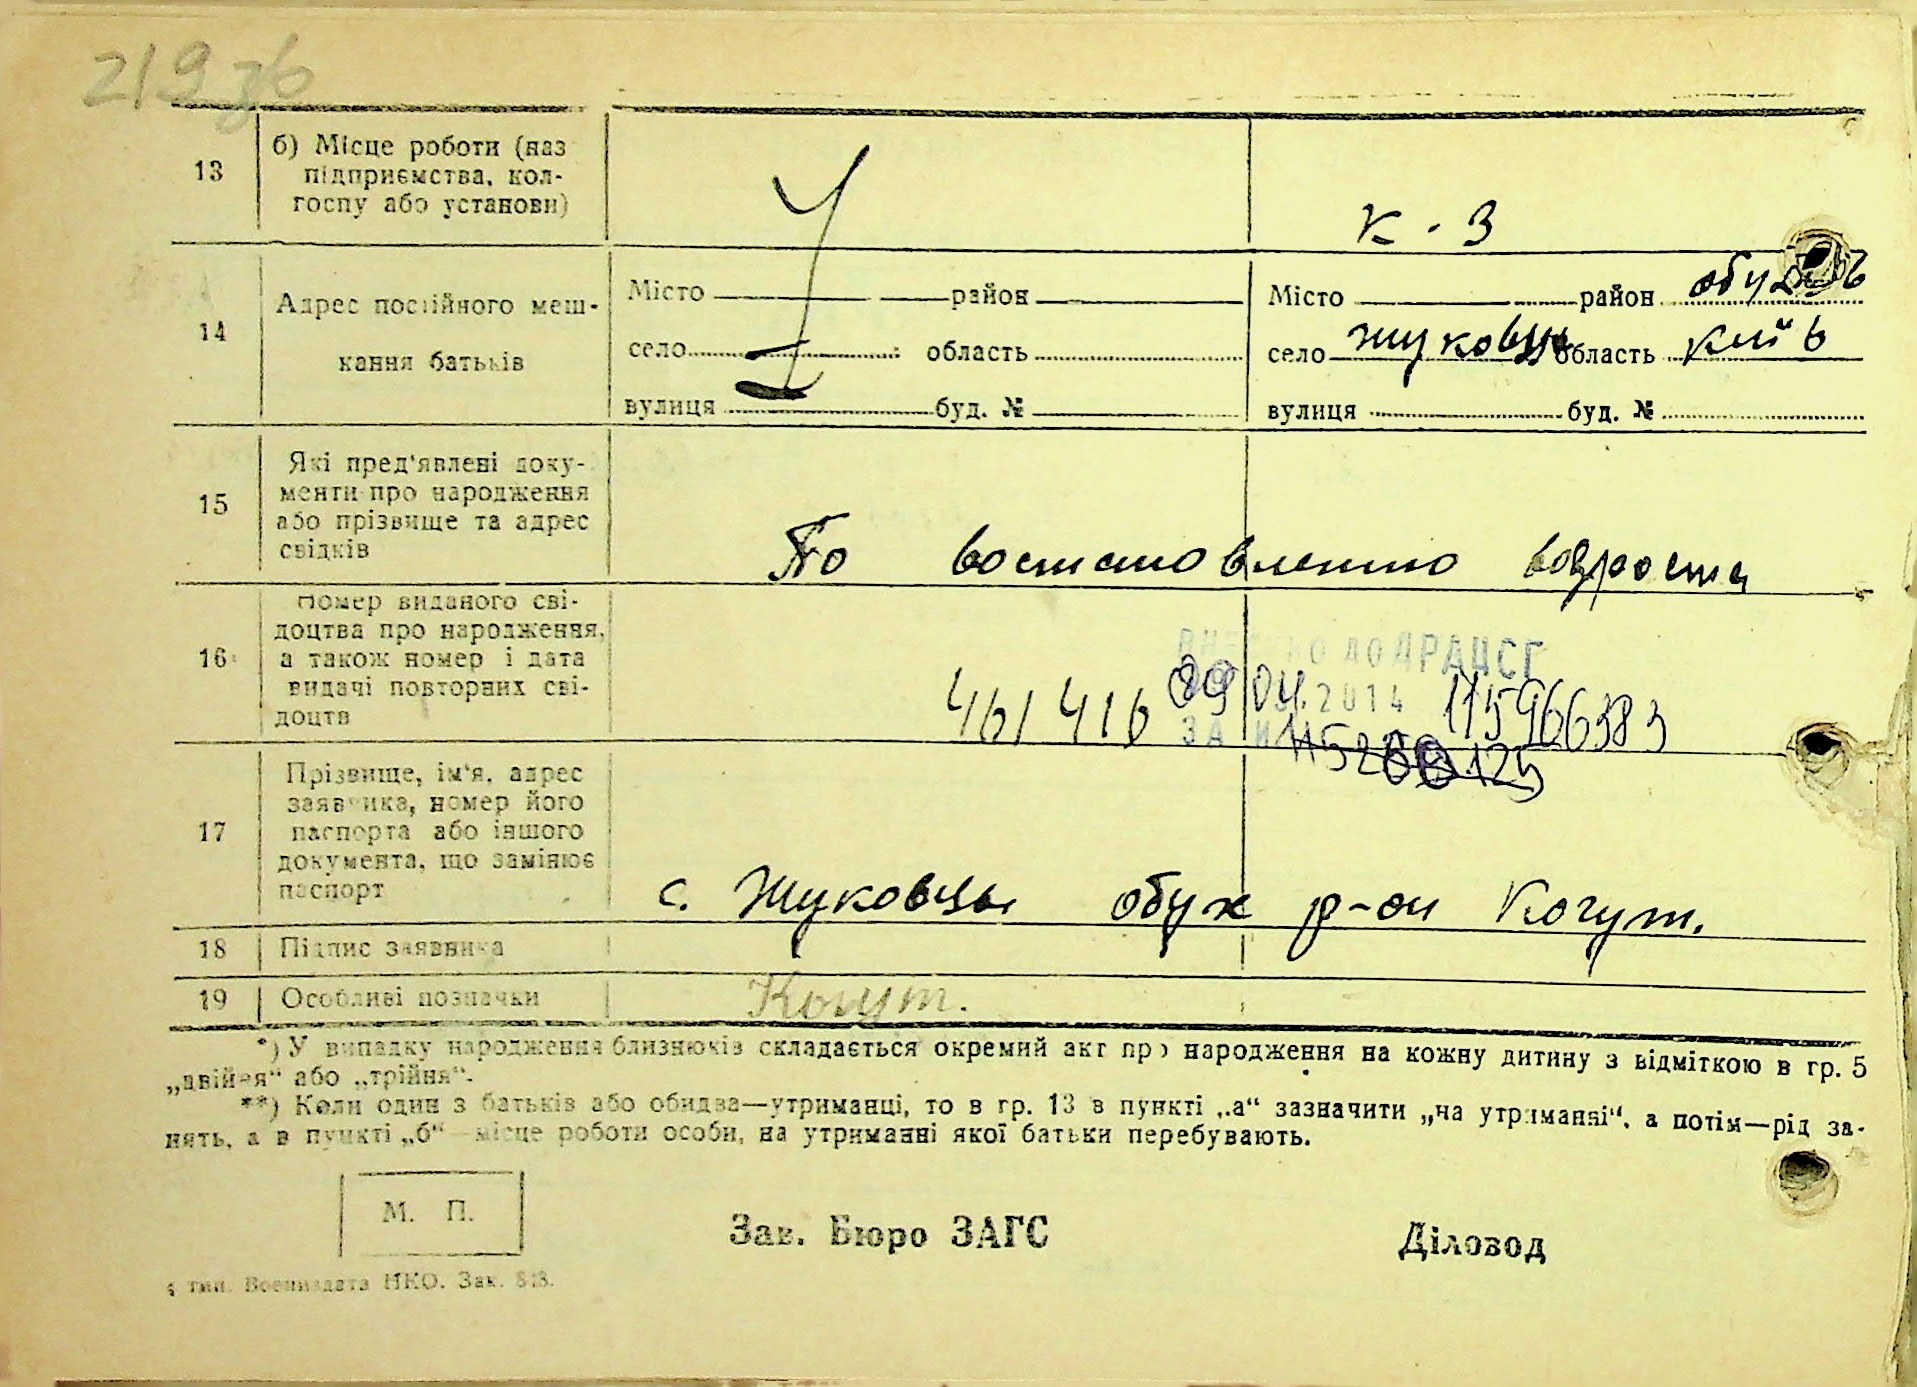 219 зв
13
б) Місце роботи (наз
підприємства, кол-
госпу або установи)
К - З
14
Адрес постійного меш-
кання батьків
Місто район
село область
вулиця буд. №
Місто район обухів
село Жуковцы область Київ
вулиця буд. №
15
Які пред'явлені доку-
менти про народження
або прізвище та адрес
свідків
По востановлению возроста
16
Номер виданого сві-
доцтва про народження,
а також номер і дата
видачі повторних сві-
доцтв
461416
ДРАЦСГ
09 04 2014 115966383
ЗА
17
Прізвище, ім'я, адрес
заявника, номер його
паспорта або іншого
документа, що замінює
паспорт
с. Жуковцы обух р-он Когут.
18 Підпис заявника
19 Особливі позначки
Когут.
*) У випадку народження близнюків складається окремий акт про народження на кожну дитину з відміткою в гр. 5
„двійня“ або „трійня“.
**) Коли один з батьків або обидва—утриманці, то в гр. 13 в пункті „а“ зазначити „на утриманні“, а потім—рід за-
нять, а в пункті „б“—місце роботи особи, на утриманні якої батьки перебувають.
М. П.
Зав. Бюро ЗАГС
Діловод
тип. Воениздата НКО. Зак. 818.